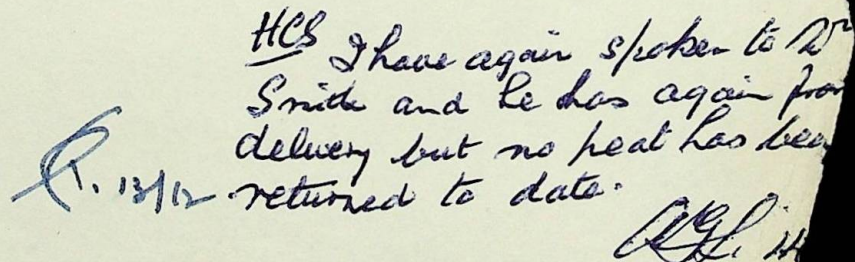 HCS I have again spoken to Dr
Smith and he has again prom
delivery but no peat has bee
returned to date.
13/12